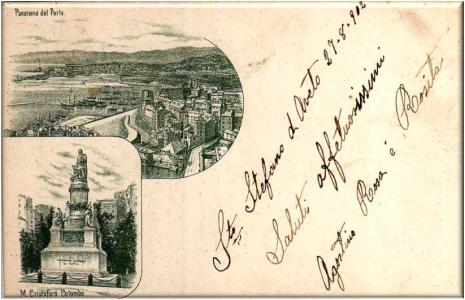 Panorama del Porto.
M. Cristoforo Colombo
Sto Stefano d. Aveto 27-8-902
Saluti affettuosissimi
Agostino Rosa e Rosita